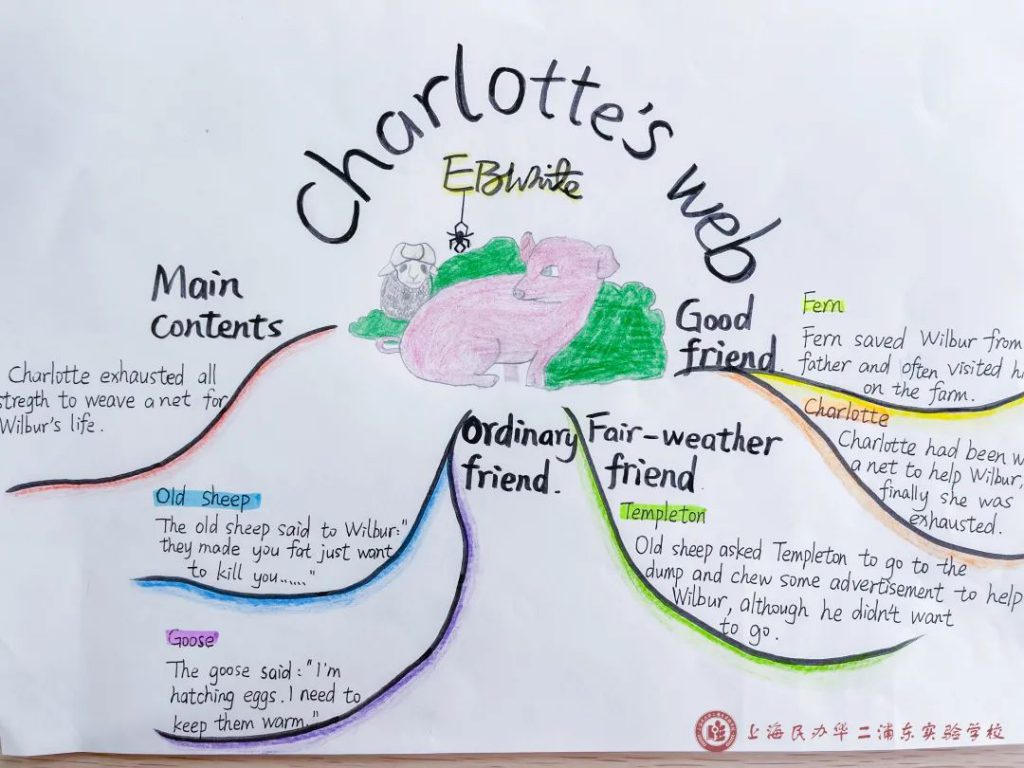 Charlotte's web
EBWhite
Main
contents
Charlotte exhausted all
stregth to weave a net for
Wilbur's life.
Good
friend.
Fern
Fern saved Wilbur from
father and often visited
on the farm.
Charlotte
Charlotte had been
a net to help Wilbur,
finally she was
exhausted.
Ordinary
friend.
Old sheep
The old sheep said to Wilbur:"
they made you fat just want
to kill you......"
Goose
The goose said: "I'm
hatching eggs. I need to
keep them warm."
Fair-weather
friend
Templeton
Old sheep asked Templeton to go to the
dump and chew some advertisement to help
Wilbur, although he didn't want
to go.
上海民办华二浦东实验学校